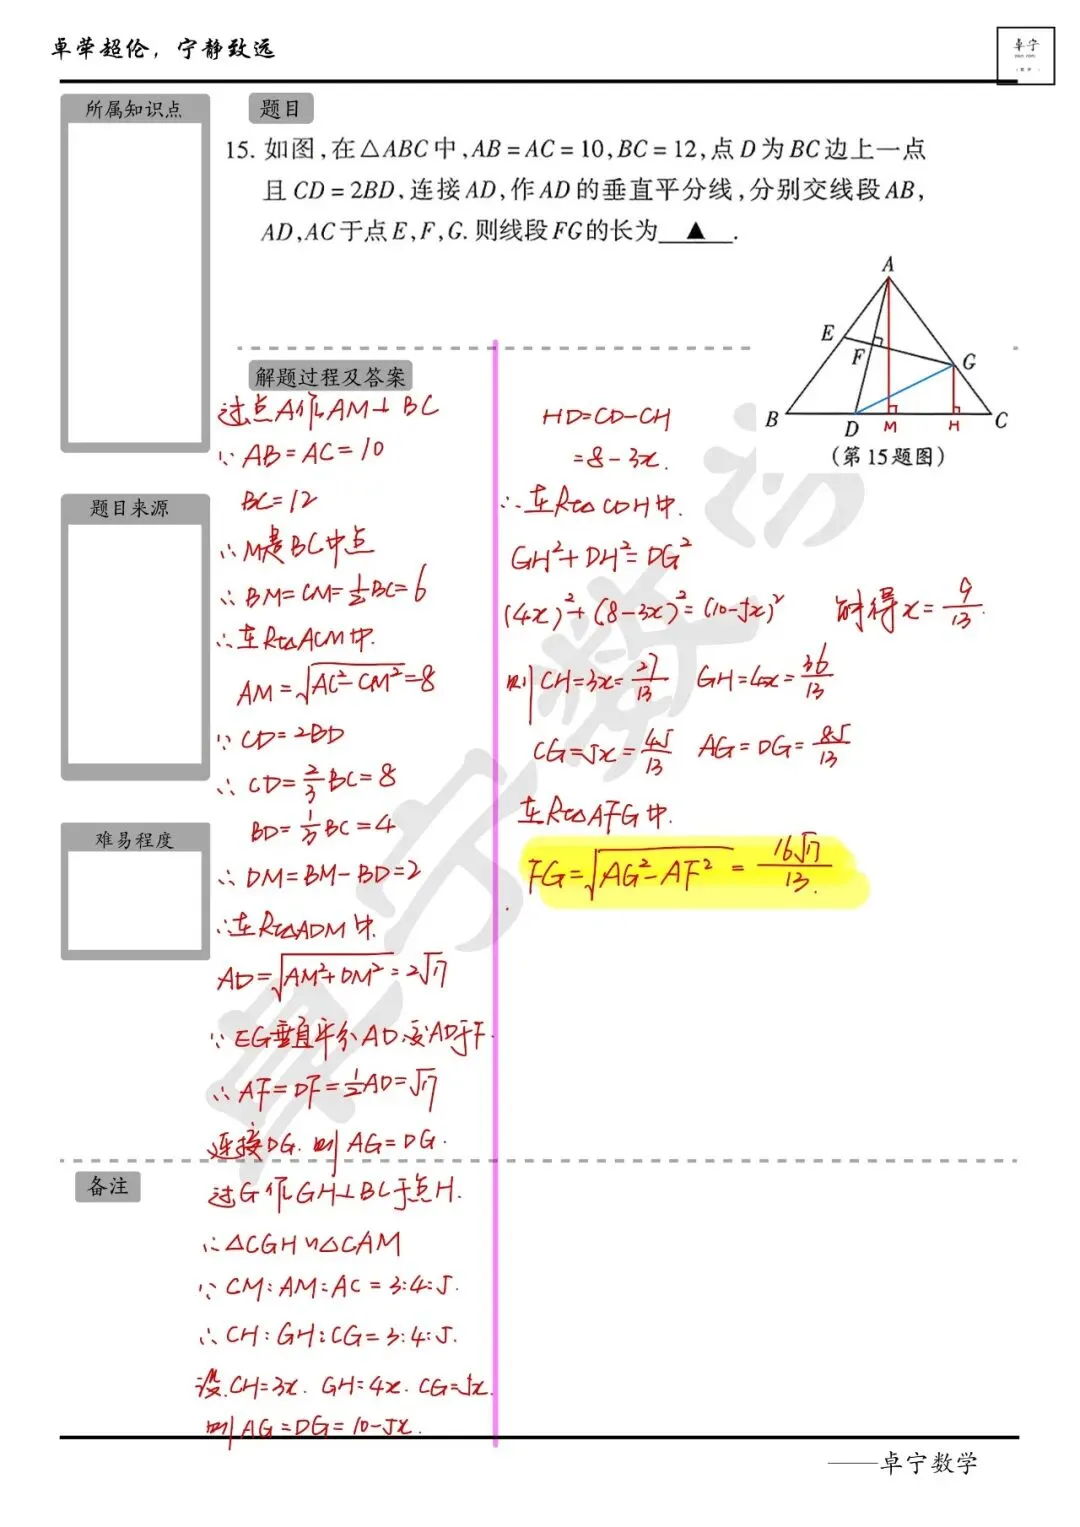 卓荦超伦，宁静致远
卓宁
所属知识点
题目
15. 如图,在△ABC中,AB=AC=10,BC=12,点D为BC边上一点
且CD=2BD,连接AD,作AD的垂直平分线,分别交线段AB,
AD,AC于点E,F,G.则线段FG的长为 ▲ .
A
E
F
G
B
D
M
H
C
(第15题图)
解题过程及答案
过点A作AM⊥BC
∵AB=AC=10
BC=12
∴M是BC中点
∴BM=CM=½BC=6
∴在Rt△ACM中.
AM=√(AC²-CM²)=8
∵CD=2BD
∴CD=2/3BC=8
BD=1/3BC=4
∴DM=BM-BD=2
∴在Rt△ADM中.
AD=√(AM²+DM²)=2√17
∵EG垂直平分AD,交AD于F.
∴AF=DF=½AD=√17
连接DG.则AG=DG.
过G作GH⊥BC于点H.
∴△CGH∽△CAM
∵CM:AM:AC=3:4:5.
∴CH:GH:CG=3:4:5.
设CH=3x. GH=4x. CG=5x.
则AG=DG=10-5x.
HD=CD-CH
=8-3x.
∴在Rt△CDH中.
GH²+DH²=DG²
(4x)²+(8-3x)²=(10-5x)² 解得x=9/13.
则CH=3x=27/13 GH=4x=36/13
CG=5x=45/13 AG=DG=85/13
在Rt△AFG中.
FG=√(AG²-AF²)=16√17/13.
题目来源
难易程度
备注
卓宁数学
——卓宁数学